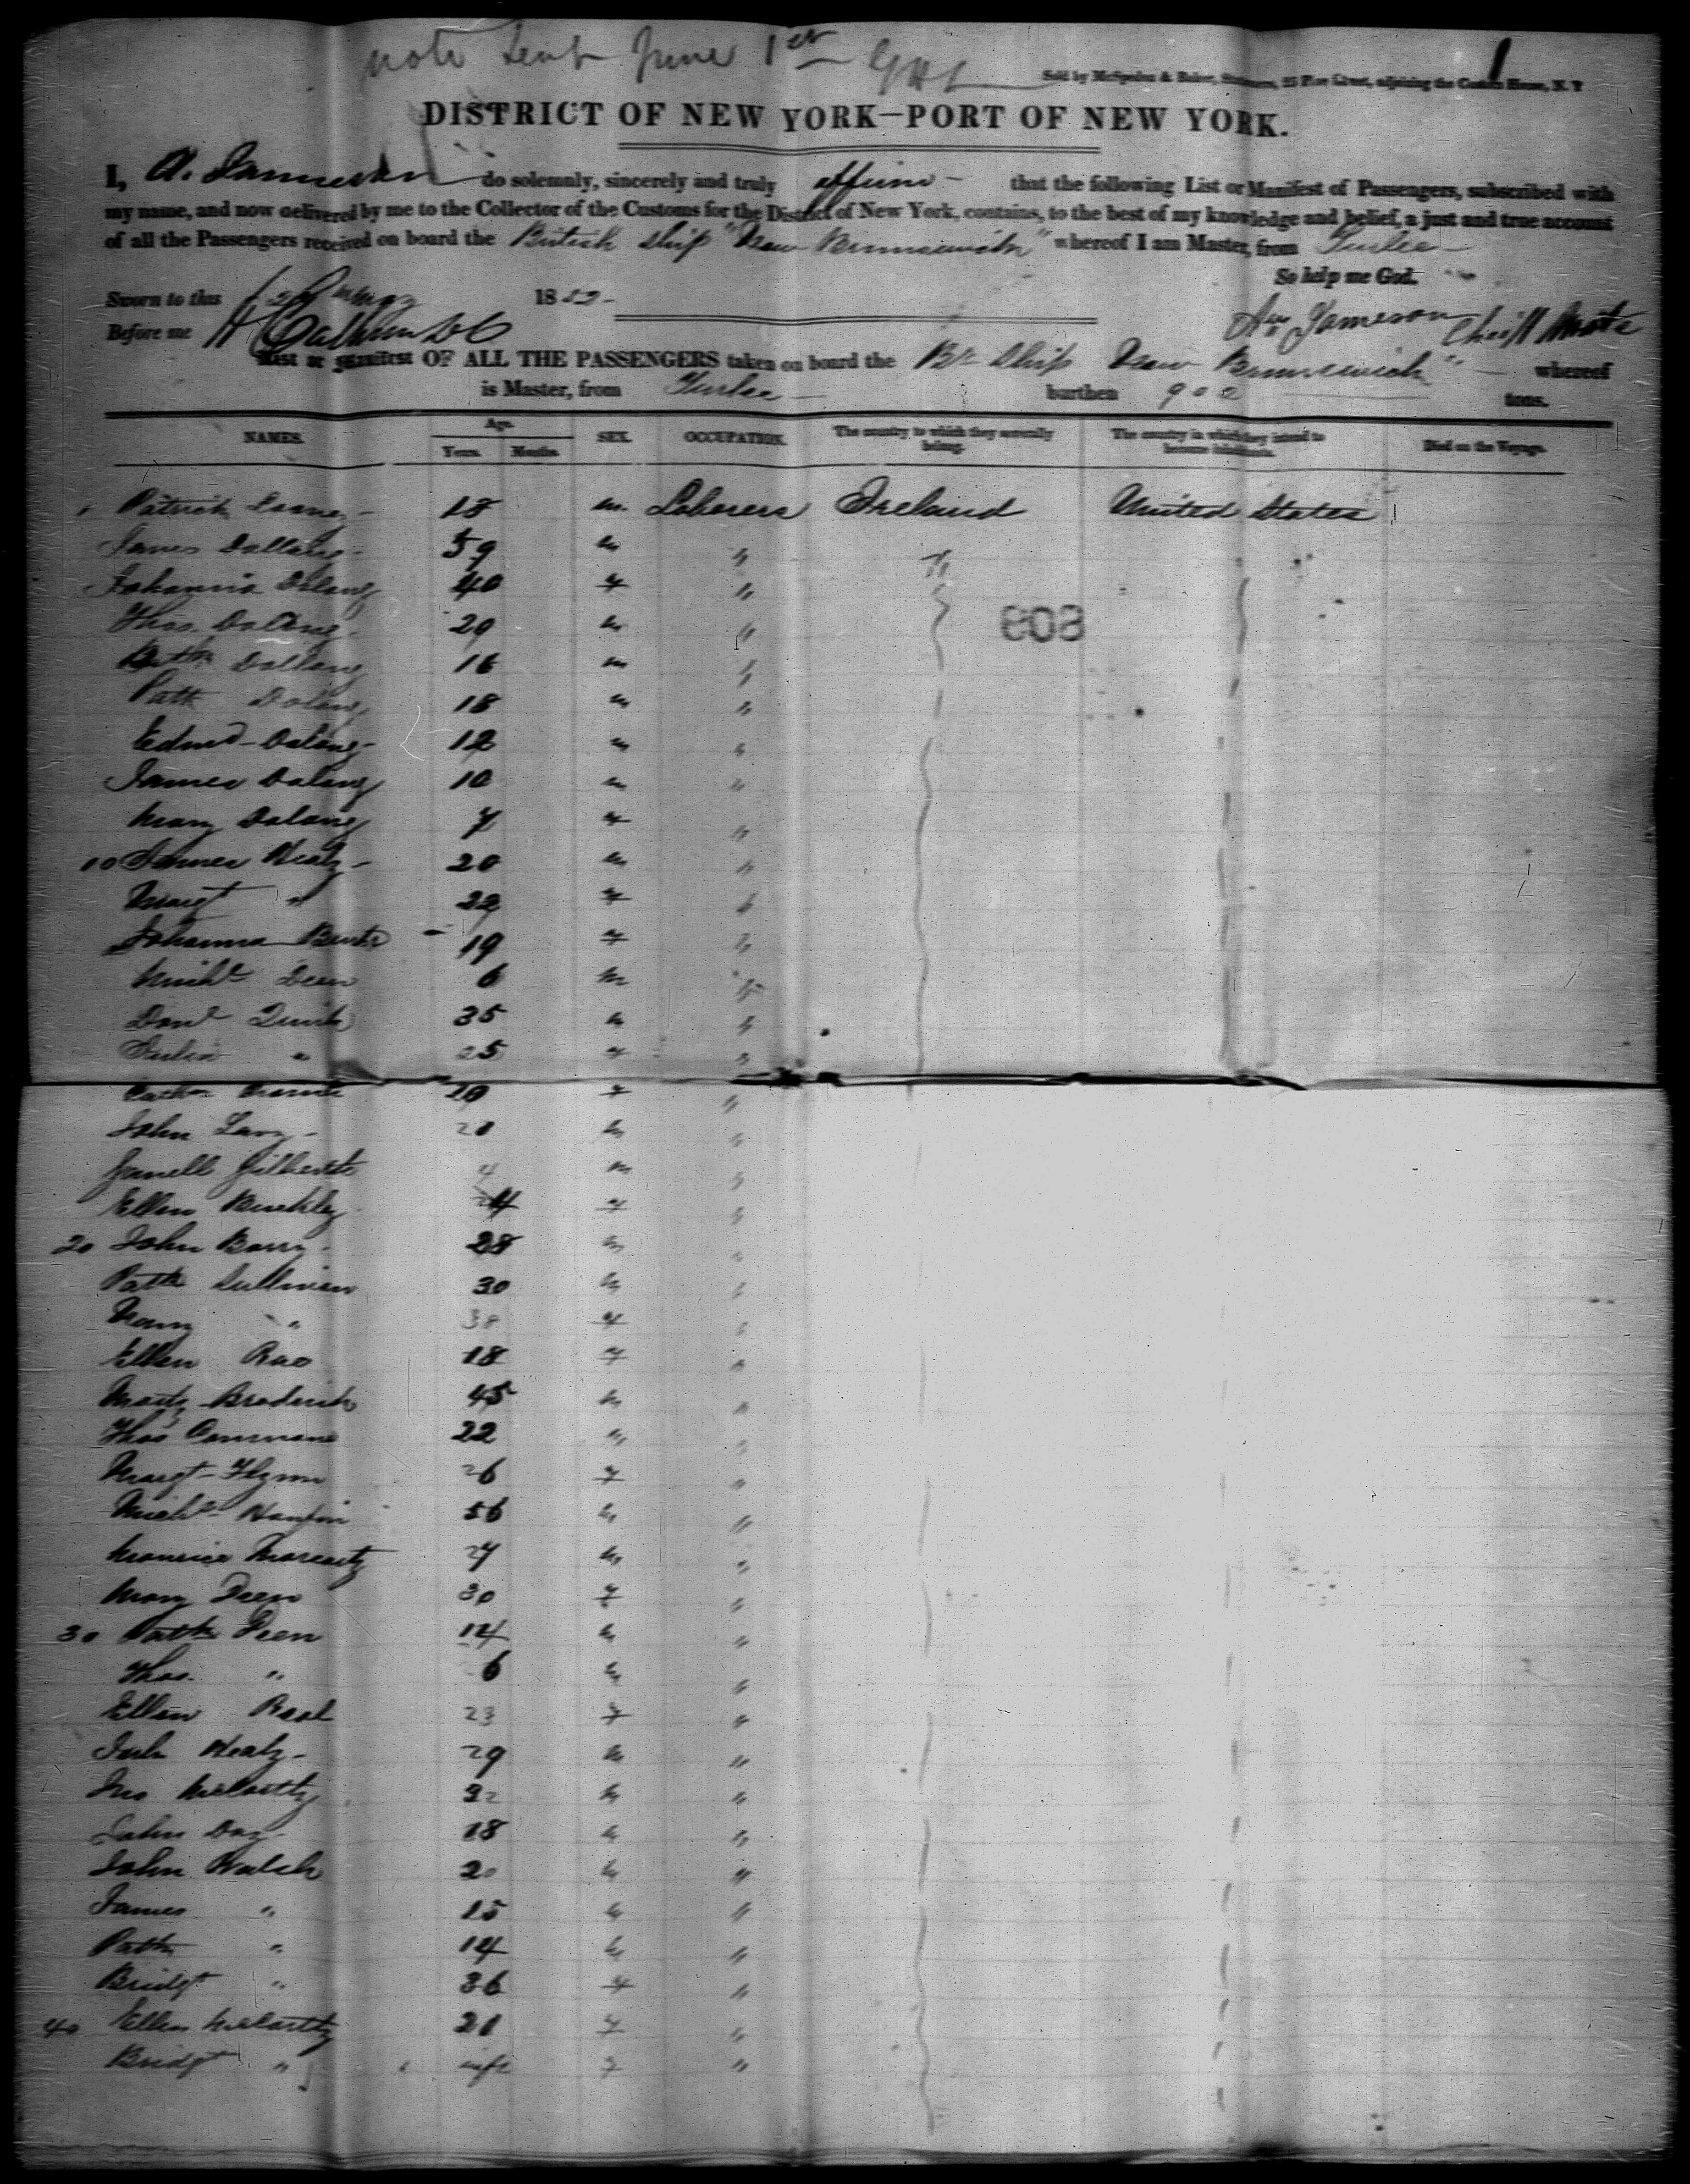 note sent June 1st
Sold by McSpedon & Baker, Stationers, 25 Pine Street, adjoining the Custom House, N. Y
DISTRICT OF NEW YORK—PORT OF NEW YORK.
I, A. Jameson do solemnly, sincerely and truly affirm that the following List or Manifest of Passengers, subscribed with
my name, and now delivered by me to the Collector of the Customs for the District of New York, contains, to the best of my knowledge and belief, a just and true account
of all the Passengers received on board the British Ship "New Brunswick" whereof I am Master, from Tralee
So help me God.
Sworn to this 29 May 1852
Before me H Calhoun DC
Aw Jameson Chieff Mate
List or Manifest OF ALL THE PASSENGERS taken on board the Br Ship New Brunswick" whereof
is Master, from Tralee burthen 902 tons.
NAMES. Age. Years. Months. SEX. OCCUPATION. The country to which they severally belong. The country in which they intend to become inhabitants. Died on the Voyage.
1 Patrick 18 m. Laborers Ireland United States
James 59 m "
Johanna 40 f "
Thos. 20 m "
808
16 m "
Patk 18 m "
Edmd 12 m "
James 10 m "
Mary 7 f "
10 James Healy 20 m "
Margt " 22 f "
Johanna 19 f "
Michl Deen 6 m "
Danl Quirk 35 m "
Julia " 25 f "
Cath 20 f "
John 20 m "
4 m "
Ellen Buckley 24 f "
20 John Barry 28 m "
Patk Sullivan 30 m "
Mary " 30 f "
Ellen Rae 18 f "
Broderick 45 m "
Thos Commane 22 m "
Margt Flynn 26 f "
Michl Hanfin 56 m "
Maurice Moriarty 27 m "
Mary Deen 30 f "
30 Patk Deen 14 m "
Thos. " 6 m "
Ellen 23 f "
Healy 29 m "
Jno McCarthy 22 m "
John Day 18 m "
John Walsh 20 m "
James " 15 m "
Patk " 14 m "
Bridgt " 36 f "
40 Ellen McCarthy 21 f "
Bridgt " inft f "